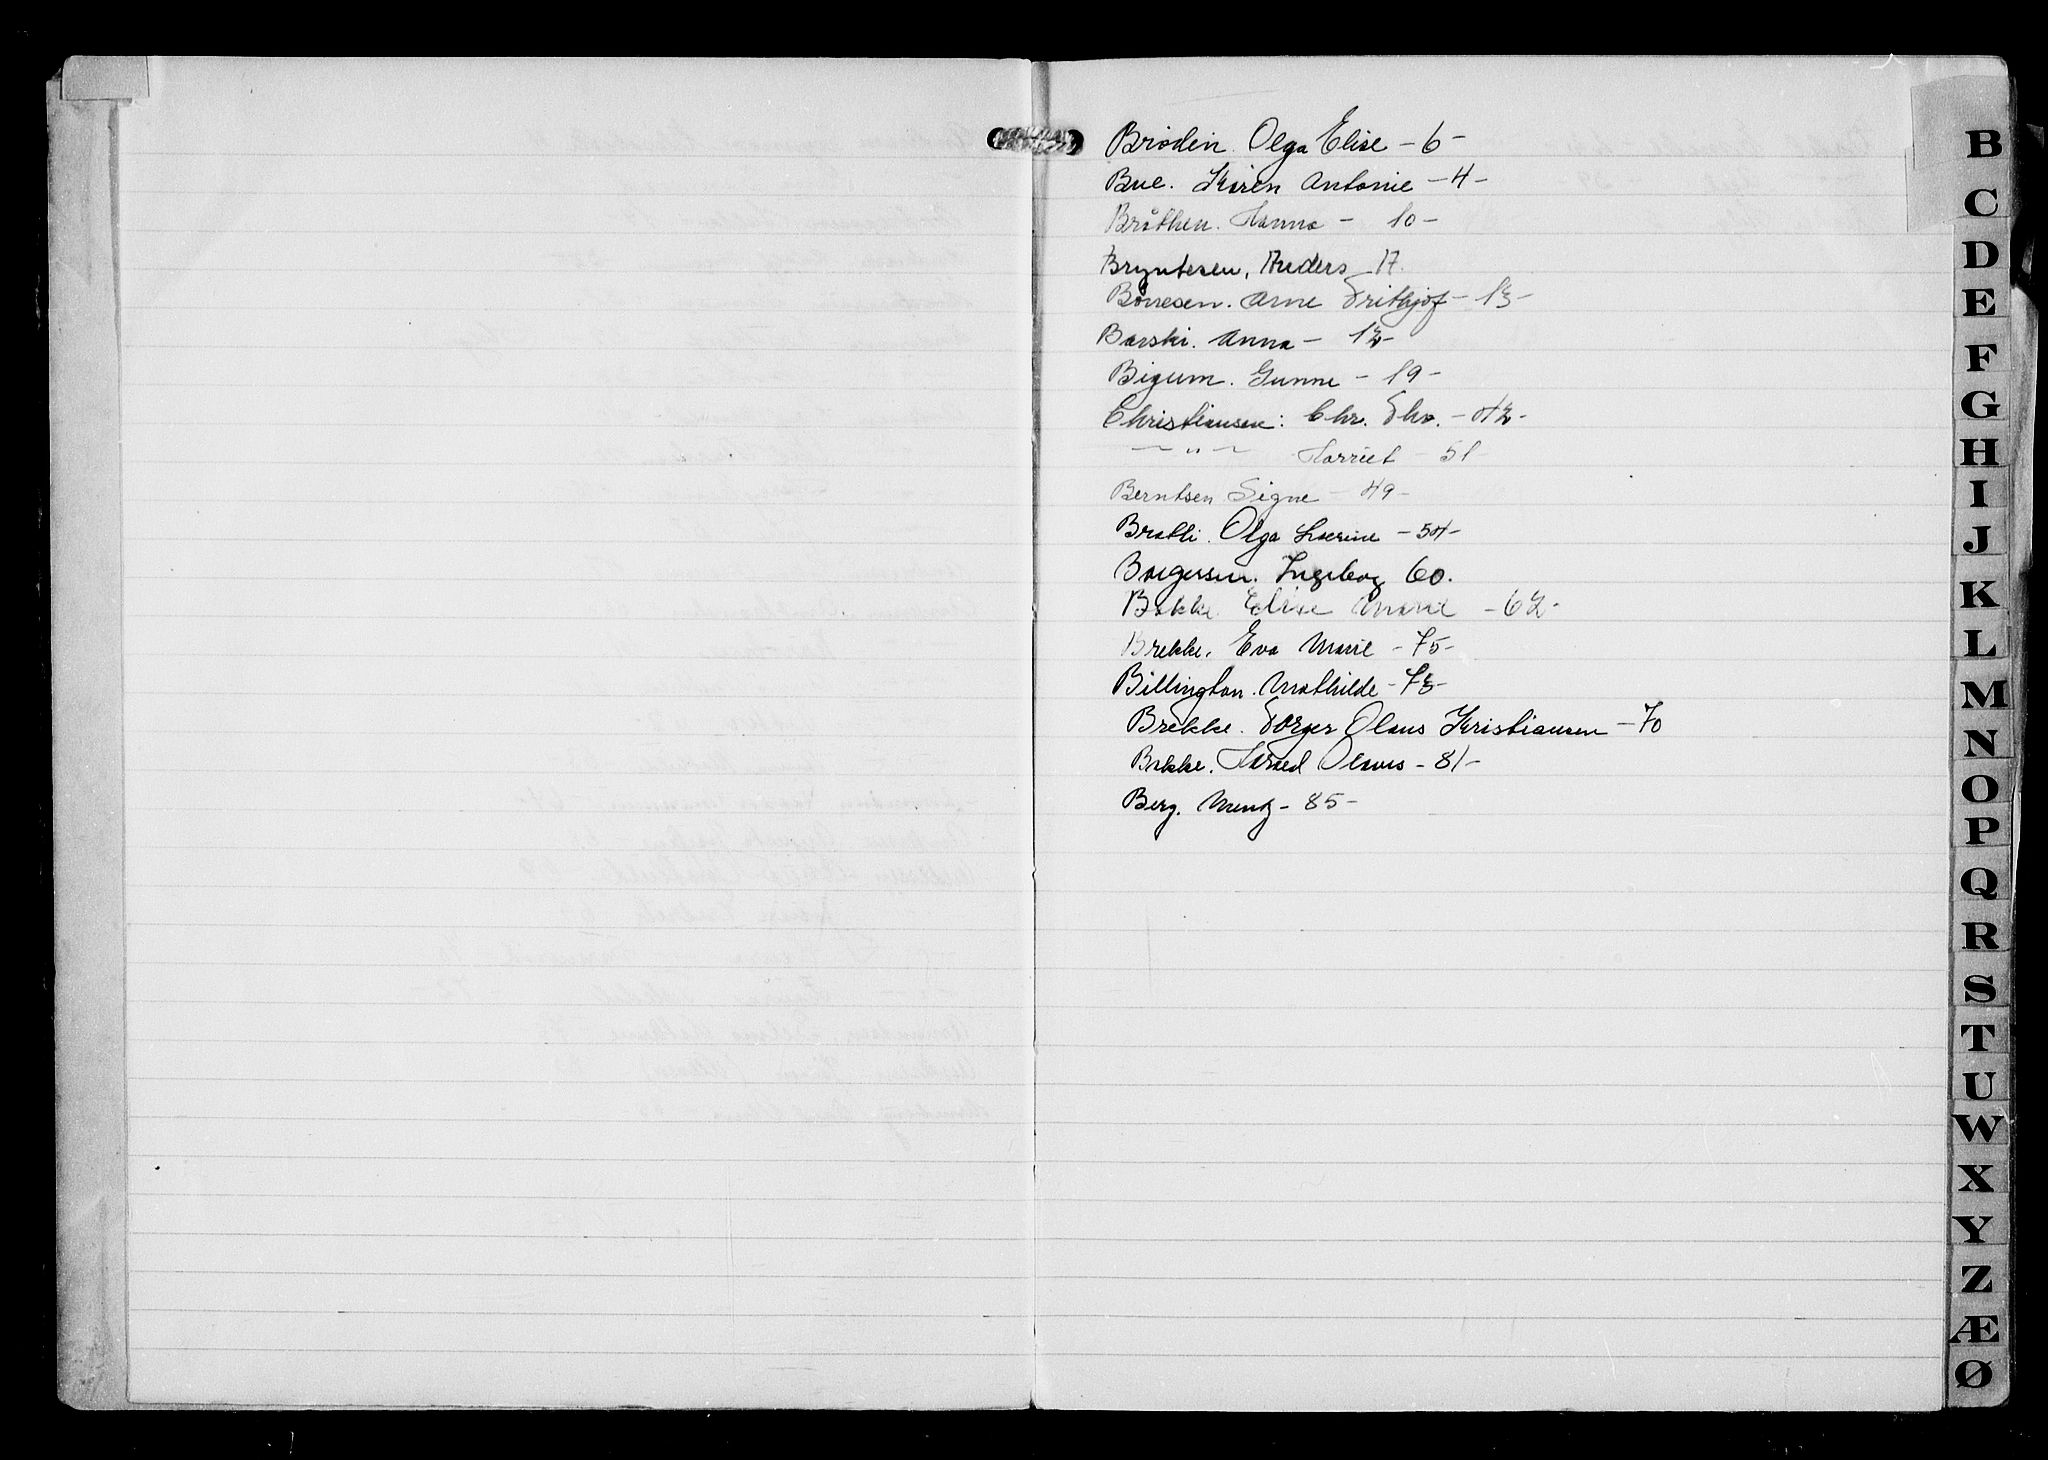 Brodin. Olga Elise - 6 -
Bue. Karen Antonie - 4 -
Bråthen. Hanna - 10 -
Bryntesen, Anders 17.
Børresen. Arne Frithjof - 13 -
Barski. Anna - 12 -
Bigum. Gunne - 19 -
Christiansen: Chr. Thv. - 42 -
- " - Harriet - 51
Berntsen Signe - 49 -
Bratli. Olga - 54 -
Borgersen. Ingeborg 60.
Bakke. Elise Marie - 62 -
Brekke. Eva Marie - 75 -
Billington. Mathilde - 73 -
Brekke. Torger Olaus Kristiansen - 70
Bakke. Harald Olaus - 81 -
Berg. Mentz - 85 -
B
C
D
E
F
G
H
I
J
K
L
M
N
O
P
Q
R
S
T
U
W
X
Y
Z
Æ
Ø